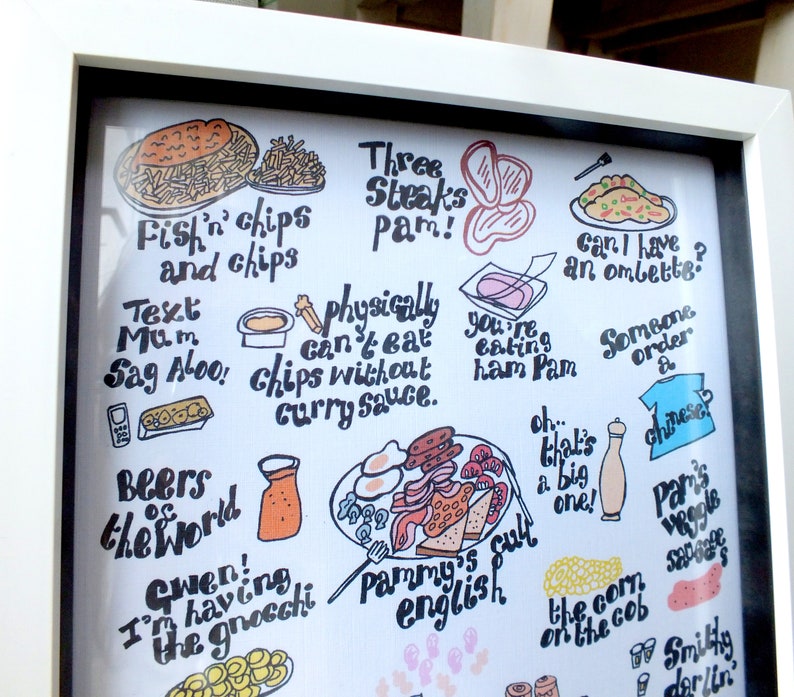 Fish 'n' chips
and chips
Three
Steaks
pam!
can I have
an omlette?
Text
Mum
Sag Aloo!
physically
can't eat
chips without
curry sauce.
you're
eating
ham Pam
Someone
order
a
chinese?
Beers
of
the World
oh..
that's
a big
one!
Pam's
veggie
sausages
Pammy's full
english
Gwen!
I'm having
the gnocchi
the corn
on the cob
Smithy
darlin'